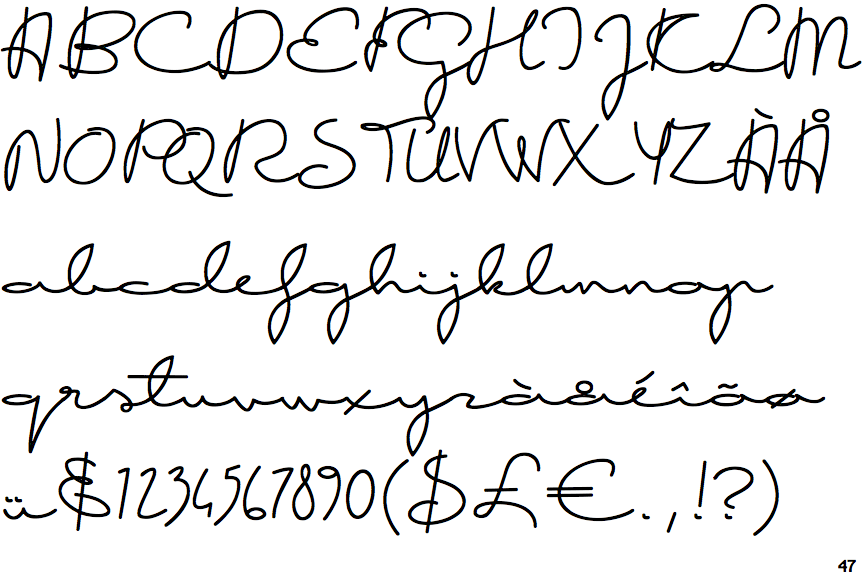 ABCDEFGHIJKLM
NOPQRSTUVWXYZÀÅ
abcdefghijklmnop
qrstuvwxyzàåéîõø
ü&1234567890($£€.,!?)
47